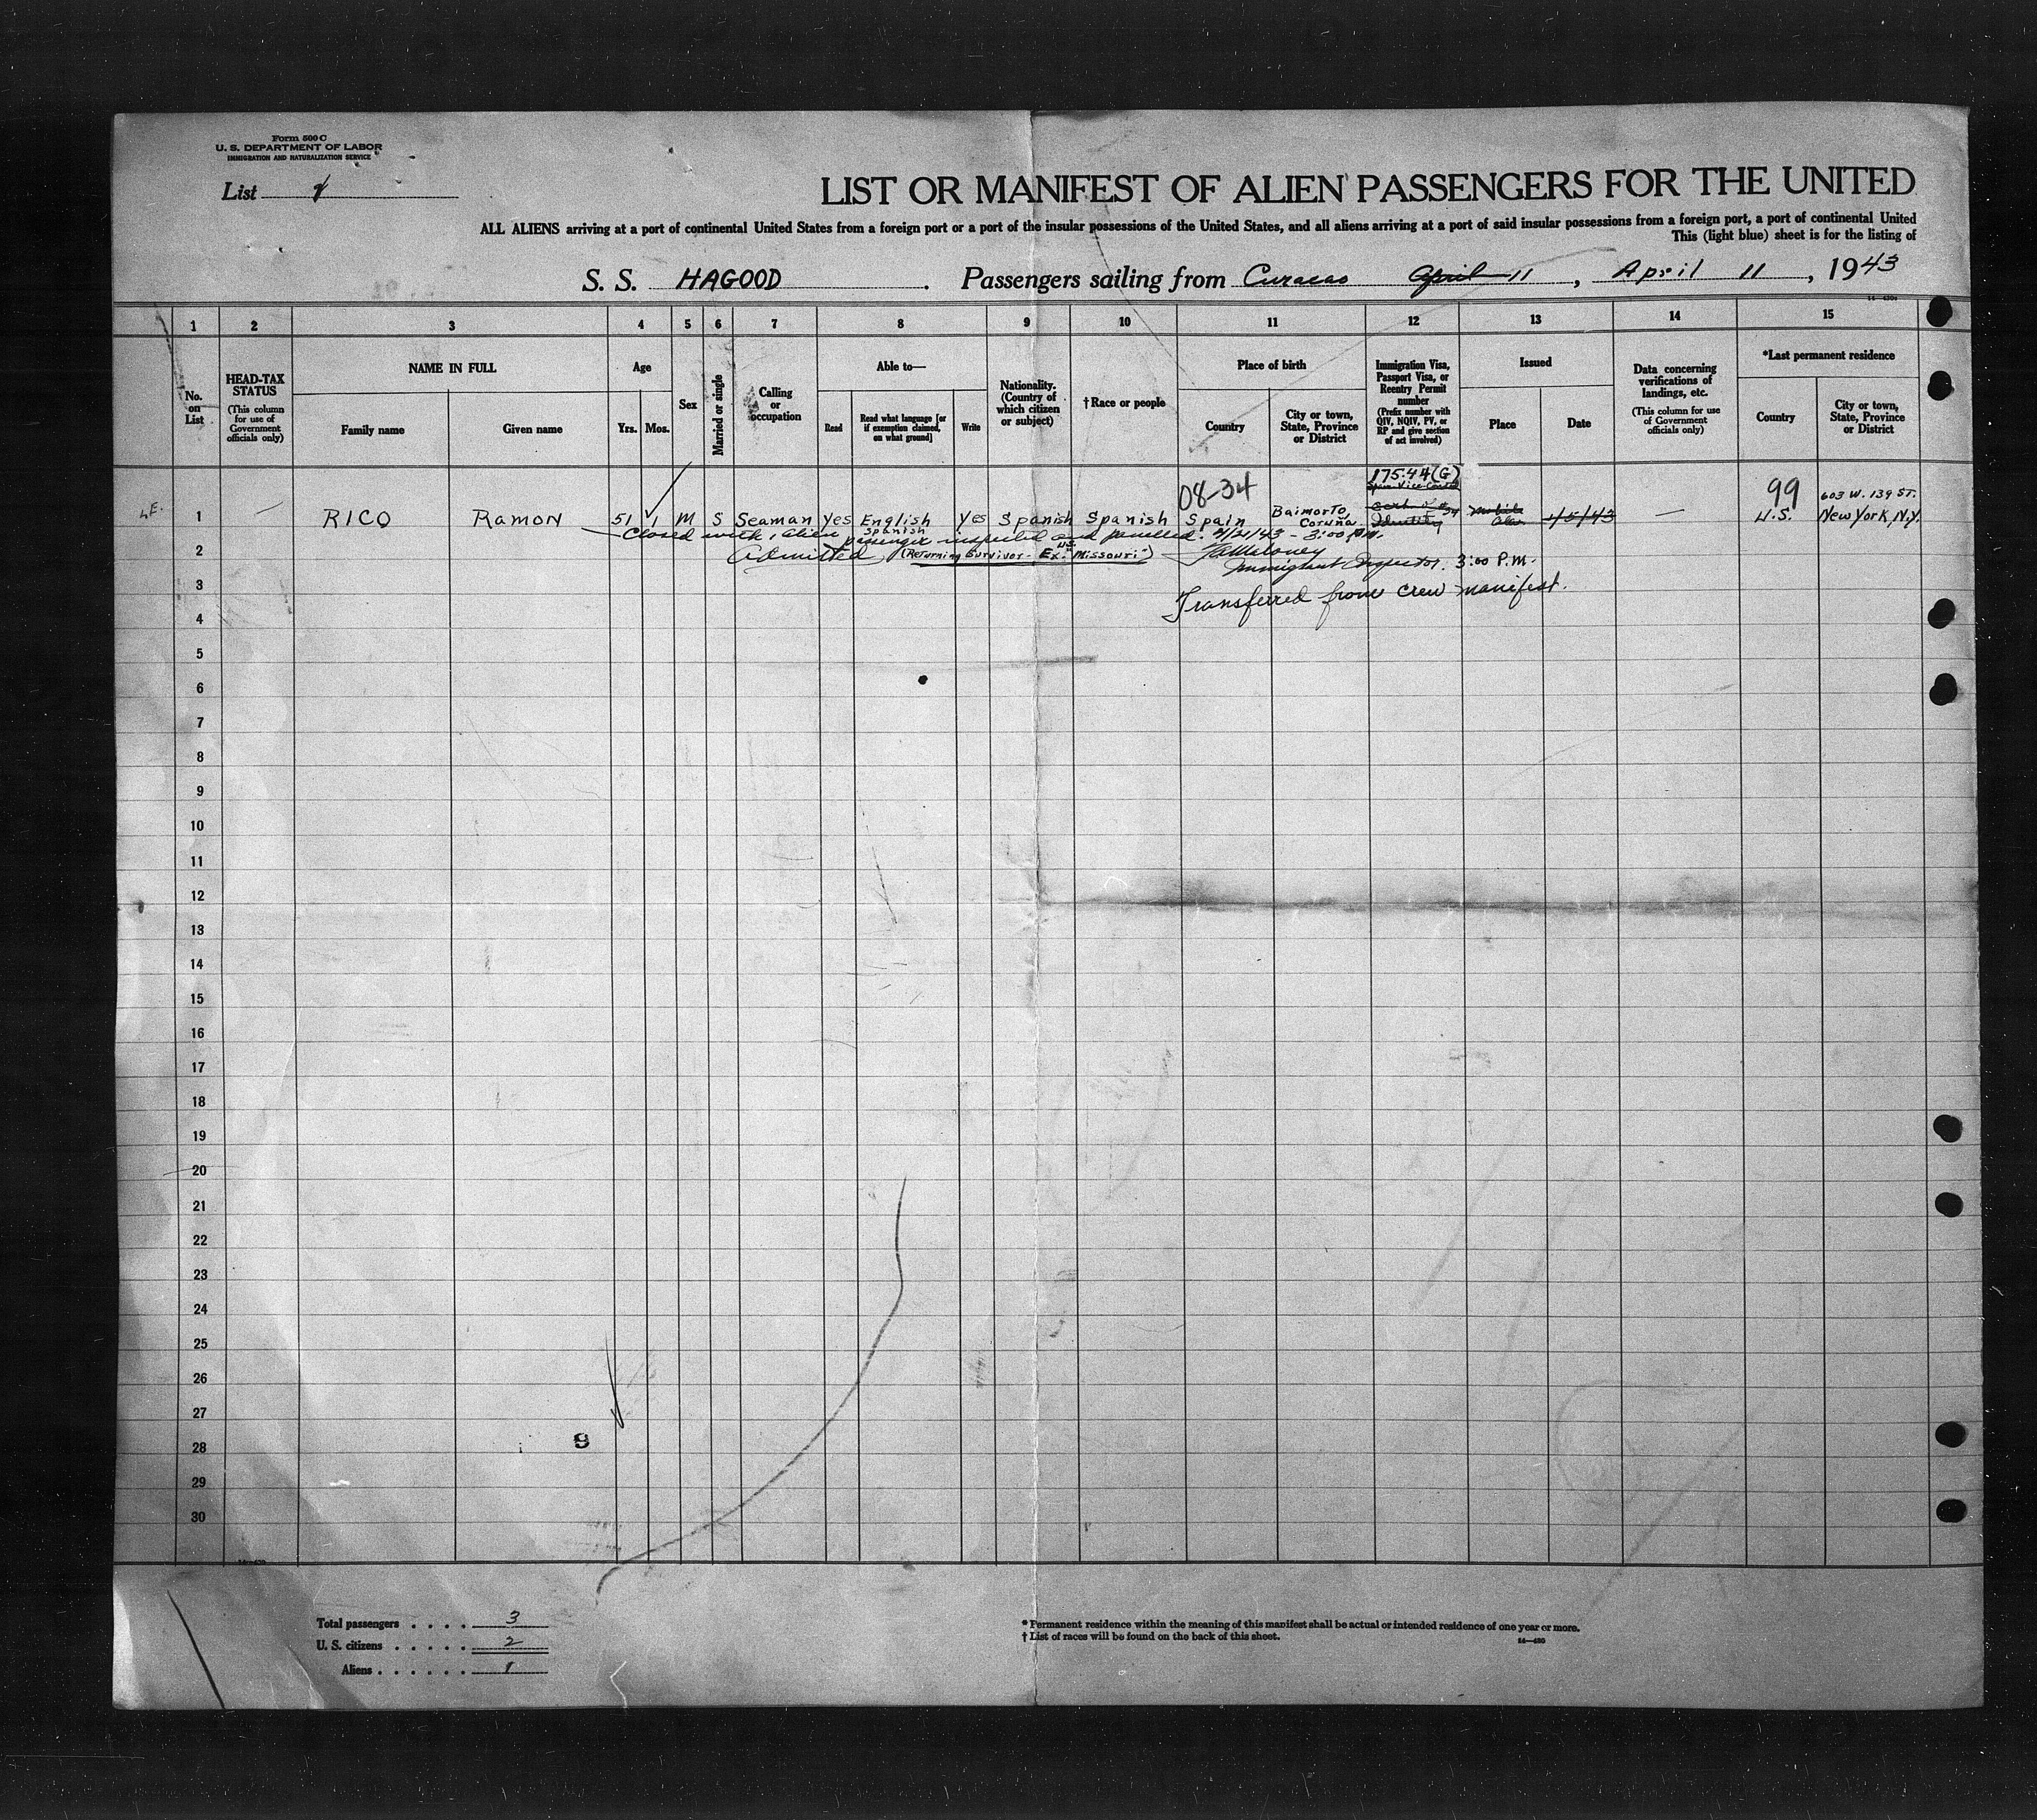 Form 500 C
U. S. DEPARTMENT OF LABOR
IMMIGRATION AND NATURALIZATION SERVICE
List
LIST OR MANIFEST OF ALIEN PASSENGERS FOR THE UNITED
ALL ALIENS arriving at a port of continental United States from a foreign port or a port of the insular possessions of the United States, and all aliens arriving at a port of said insular possessions from a foreign port, a port of continental United
This (light blue) sheet is for the listing of
S. S. HAGOOD . Passengers sailing from Curacao April 11 , April 11 , 1943
1 2 3 4 5 6 7 8 9 10 11 12 13 14 15
No. on List
HEAD-TAX STATUS
(This column for use of Government officials only)
NAME IN FULL
Family name
Given name
Age
Yrs.
Mos.
Sex
Married or single
Calling or occupation
Able to—
Read
Read what language [or if exemption claimed, on what ground]
Write
Nationality. (Country of which citizen or subject)
†Race or people
Place of birth
Country
City or town, State, Province or District
Immigration Visa, Passport Visa, or Reentry Permit number
(Prefix number with QIV, NQIV, PV, or RP and give section of act involved)
Issued
Place
Date
Data concerning verifications of landings, etc.
(This column for use of Government officials only)
*Last permanent residence
Country
City or town, State, Province or District
08-34
175.44(G)
99
603 W. 139 ST.
1 RICO Ramon 51 1 M S Seaman yes English Spanish yes Spanish Spanish Spain Baimorto, Coruña. Identity Mobile Ala. 4/5/43 — U.S. New York, N.Y.
Closed with 1 alien passenger inspected and 4/21/43 - 3:00 P.M.
Admitted (Returning Survivor - Ex. U.S. "Missouri") Maloney
Immigrant Inspector. 3:00 P.M.
Transferred from crew manifest.
2
3
4
5
6
7
8
9
10
11
12
13
14
15
16
17
18
19
20
21
22
23
24
25
26
27
28
29
30
Total passengers . . . . 3
U. S. citizens . . . . . 2
Aliens . . . . . . 1
* Permanent residence within the meaning of this manifest shall be actual or intended residence of one year or more.
† List of races will be found on the back of this sheet.